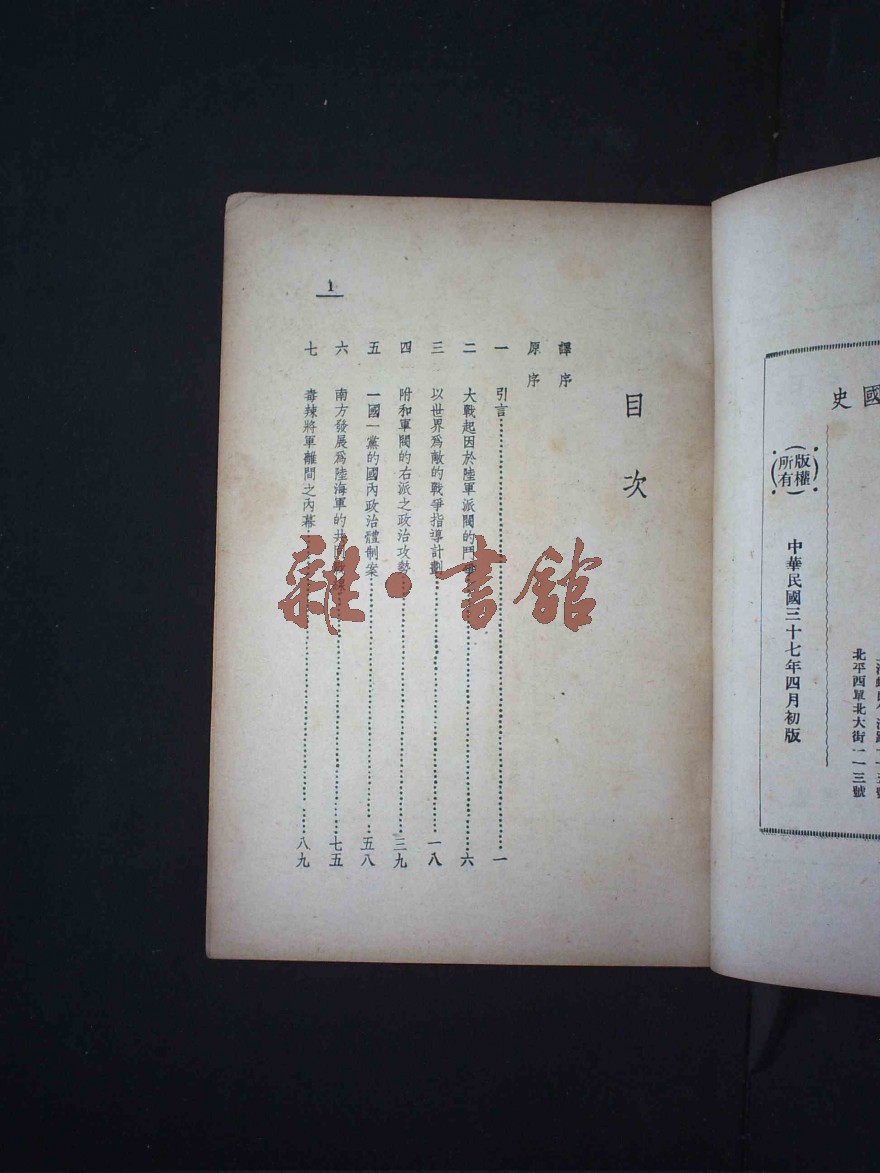 國史
版權所有
中華民國三十七年四月初版
北平西單北大街一一三號
目次
譯序
原序
一 引言 一
二 大戰起因於陸軍派閥的鬥爭 六
三 以世界為敵的戰爭指導計劃 一八
四 附和軍閥的右派之政治攻勢 三九
五 一國一黨的國內政治體制案 五八
六 南方發展為陸海軍的共同 七五
七 毒辣將軍離間之內幕 八九
1
雜·書館